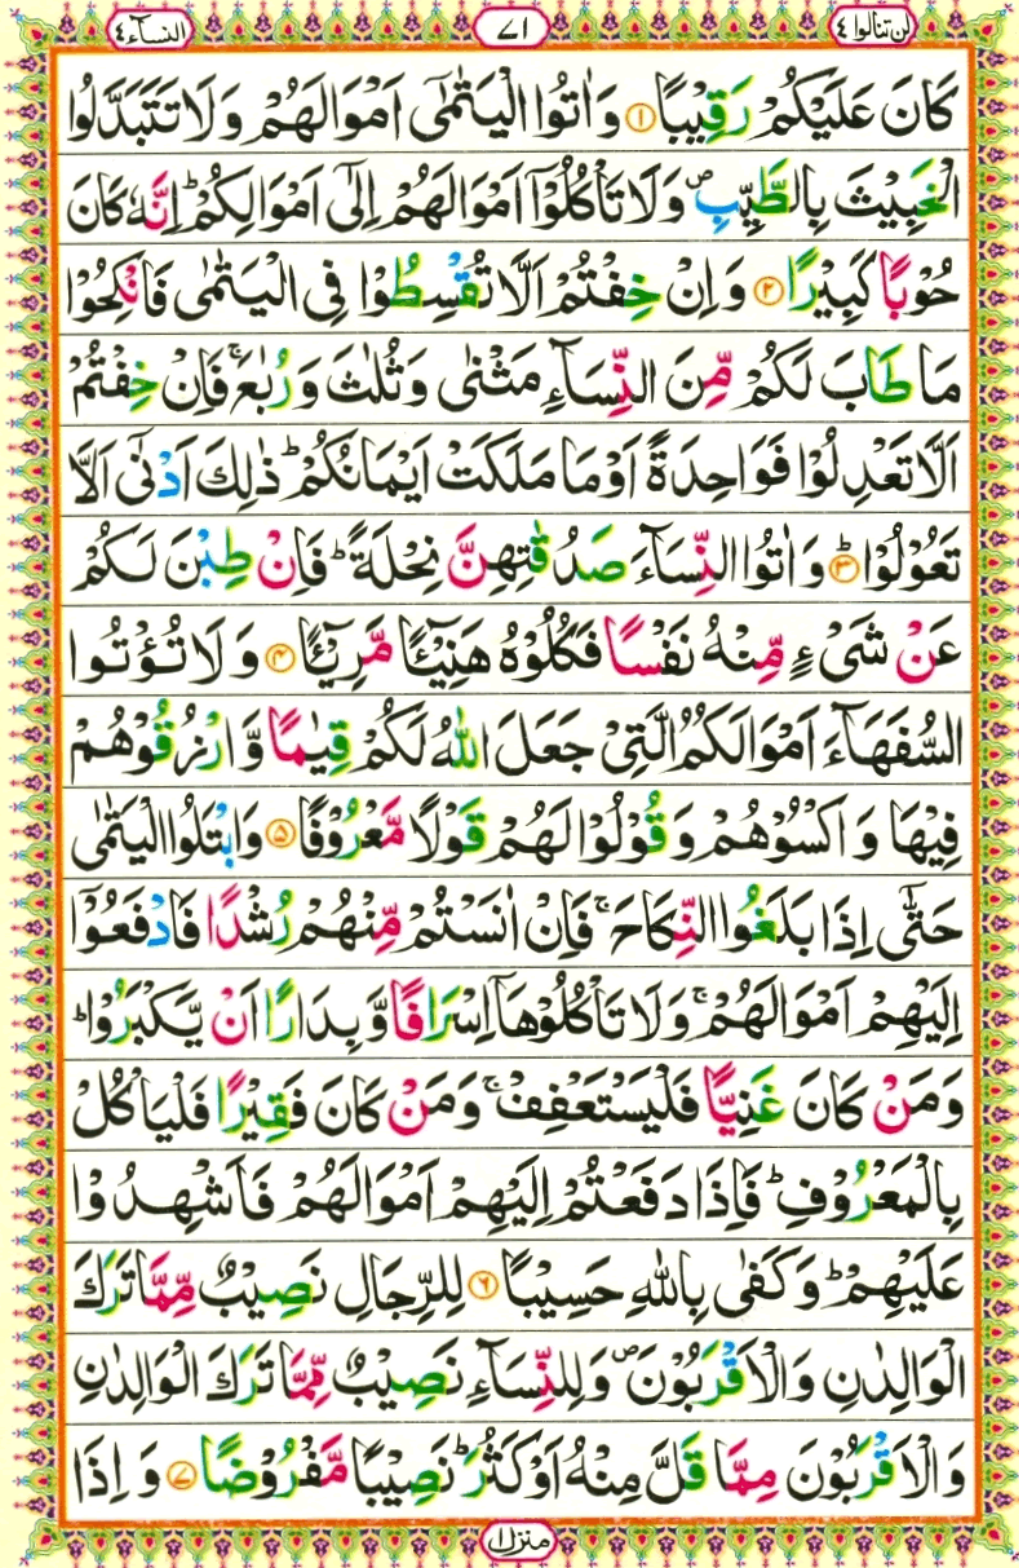 لن تنالوا ٤ ٧١ النساء ٤
كَانَ عَلَيْكُمْ رَقِيْبًا ۝۱ وَاٰتُوا الْيَتٰمٰٓى اَمْوَالَهُمْ وَلَا تَتَبَدَّلُوا
الْخَبِيْثَ بِالطَّيِّبِ ۖ وَلَا تَاْكُلُوْٓا اَمْوَالَهُمْ اِلٰٓى اَمْوَالِكُمْ ؕ اِنَّهٗ كَانَ
حُوْبًا كَبِيْرًا ۝۲ وَاِنْ خِفْتُمْ اَلَّا تُقْسِطُوْا فِى الْيَتٰمٰى فَانْكِحُوْا
مَا طَابَ لَكُمْ مِّنَ النِّسَآءِ مَثْنٰى وَثُلٰثَ وَرُبٰعَ ۚ فَاِنْ خِفْتُمْ
اَلَّا تَعْدِلُوْا فَوَاحِدَةً اَوْ مَا مَلَكَتْ اَيْمَانُكُمْ ؕ ذٰلِكَ اَدْنٰٓى اَلَّا
تَعُوْلُوْا ؕ۝۳ وَاٰتُوا النِّسَآءَ صَدُقٰتِهِنَّ نِحْلَةً ؕ فَاِنْ طِبْنَ لَكُمْ
عَنْ شَىْءٍ مِّنْهُ نَفْسًا فَكُلُوْهُ هَنِيْٓـئًا مَّرِيْٓـئًا ۝۴ وَلَا تُؤْتُوا
السُّفَهَآءَ اَمْوَالَكُمُ الَّتِىْ جَعَلَ اللّٰهُ لَكُمْ قِيٰمًا وَّارْزُقُوْهُمْ
فِيْهَا وَاكْسُوْهُمْ وَقُوْلُوْا لَهُمْ قَوْلًا مَّعْرُوْفًا ۝۵ وَابْتَلُوا الْيَتٰمٰى
حَتّٰٓى اِذَا بَلَغُوا النِّكَاحَ ۚ فَاِنْ اٰنَسْتُمْ مِّنْهُمْ رُشْدًا فَادْفَعُوْٓا
اِلَيْهِمْ اَمْوَالَهُمْ ۚ وَلَا تَاْكُلُوْهَآ اِسْرَافًا وَّبِدَارًا اَنْ يَّكْبَرُوْا ؕ
وَمَنْ كَانَ غَنِيًّا فَلْيَسْتَعْفِفْ ۚ وَمَنْ كَانَ فَقِيْرًا فَلْيَاْكُلْ
بِالْمَعْرُوْفِ ؕ فَاِذَا دَفَعْتُمْ اِلَيْهِمْ اَمْوَالَهُمْ فَاَشْهِدُوْا
عَلَيْهِمْ ؕ وَكَفٰى بِاللّٰهِ حَسِيْبًا ۝۶ لِلرِّجَالِ نَصِيْبٌ مِّمَّا تَرَكَ
الْوَالِدٰنِ وَالْاَقْرَبُوْنَ ۖ وَلِلنِّسَآءِ نَصِيْبٌ مِّمَّا تَرَكَ الْوَالِدٰنِ
وَالْاَقْرَبُوْنَ مِمَّا قَلَّ مِنْهُ اَوْ كَثُرَ ؕ نَصِيْبًا مَّفْرُوْضًا ۝۷ وَاِذَا
منزل ۱